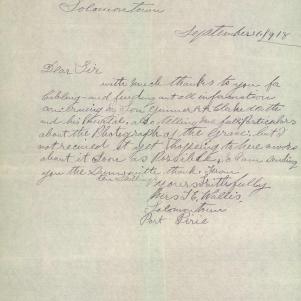 Solomontown
September 1/918
Dear Sir
with much thanks to you for
and finding out all information
concerning my Son Gunner
and his Burial, also telling me full Particulars
about the Photograph of the Grave, but I
not received it yet hopping to here more
about it Soon as Possible, I am sending
you the thank Some
ten shillings
Yours Faithfully
Mrs T E Wallis
Solomontown
Port Pirie